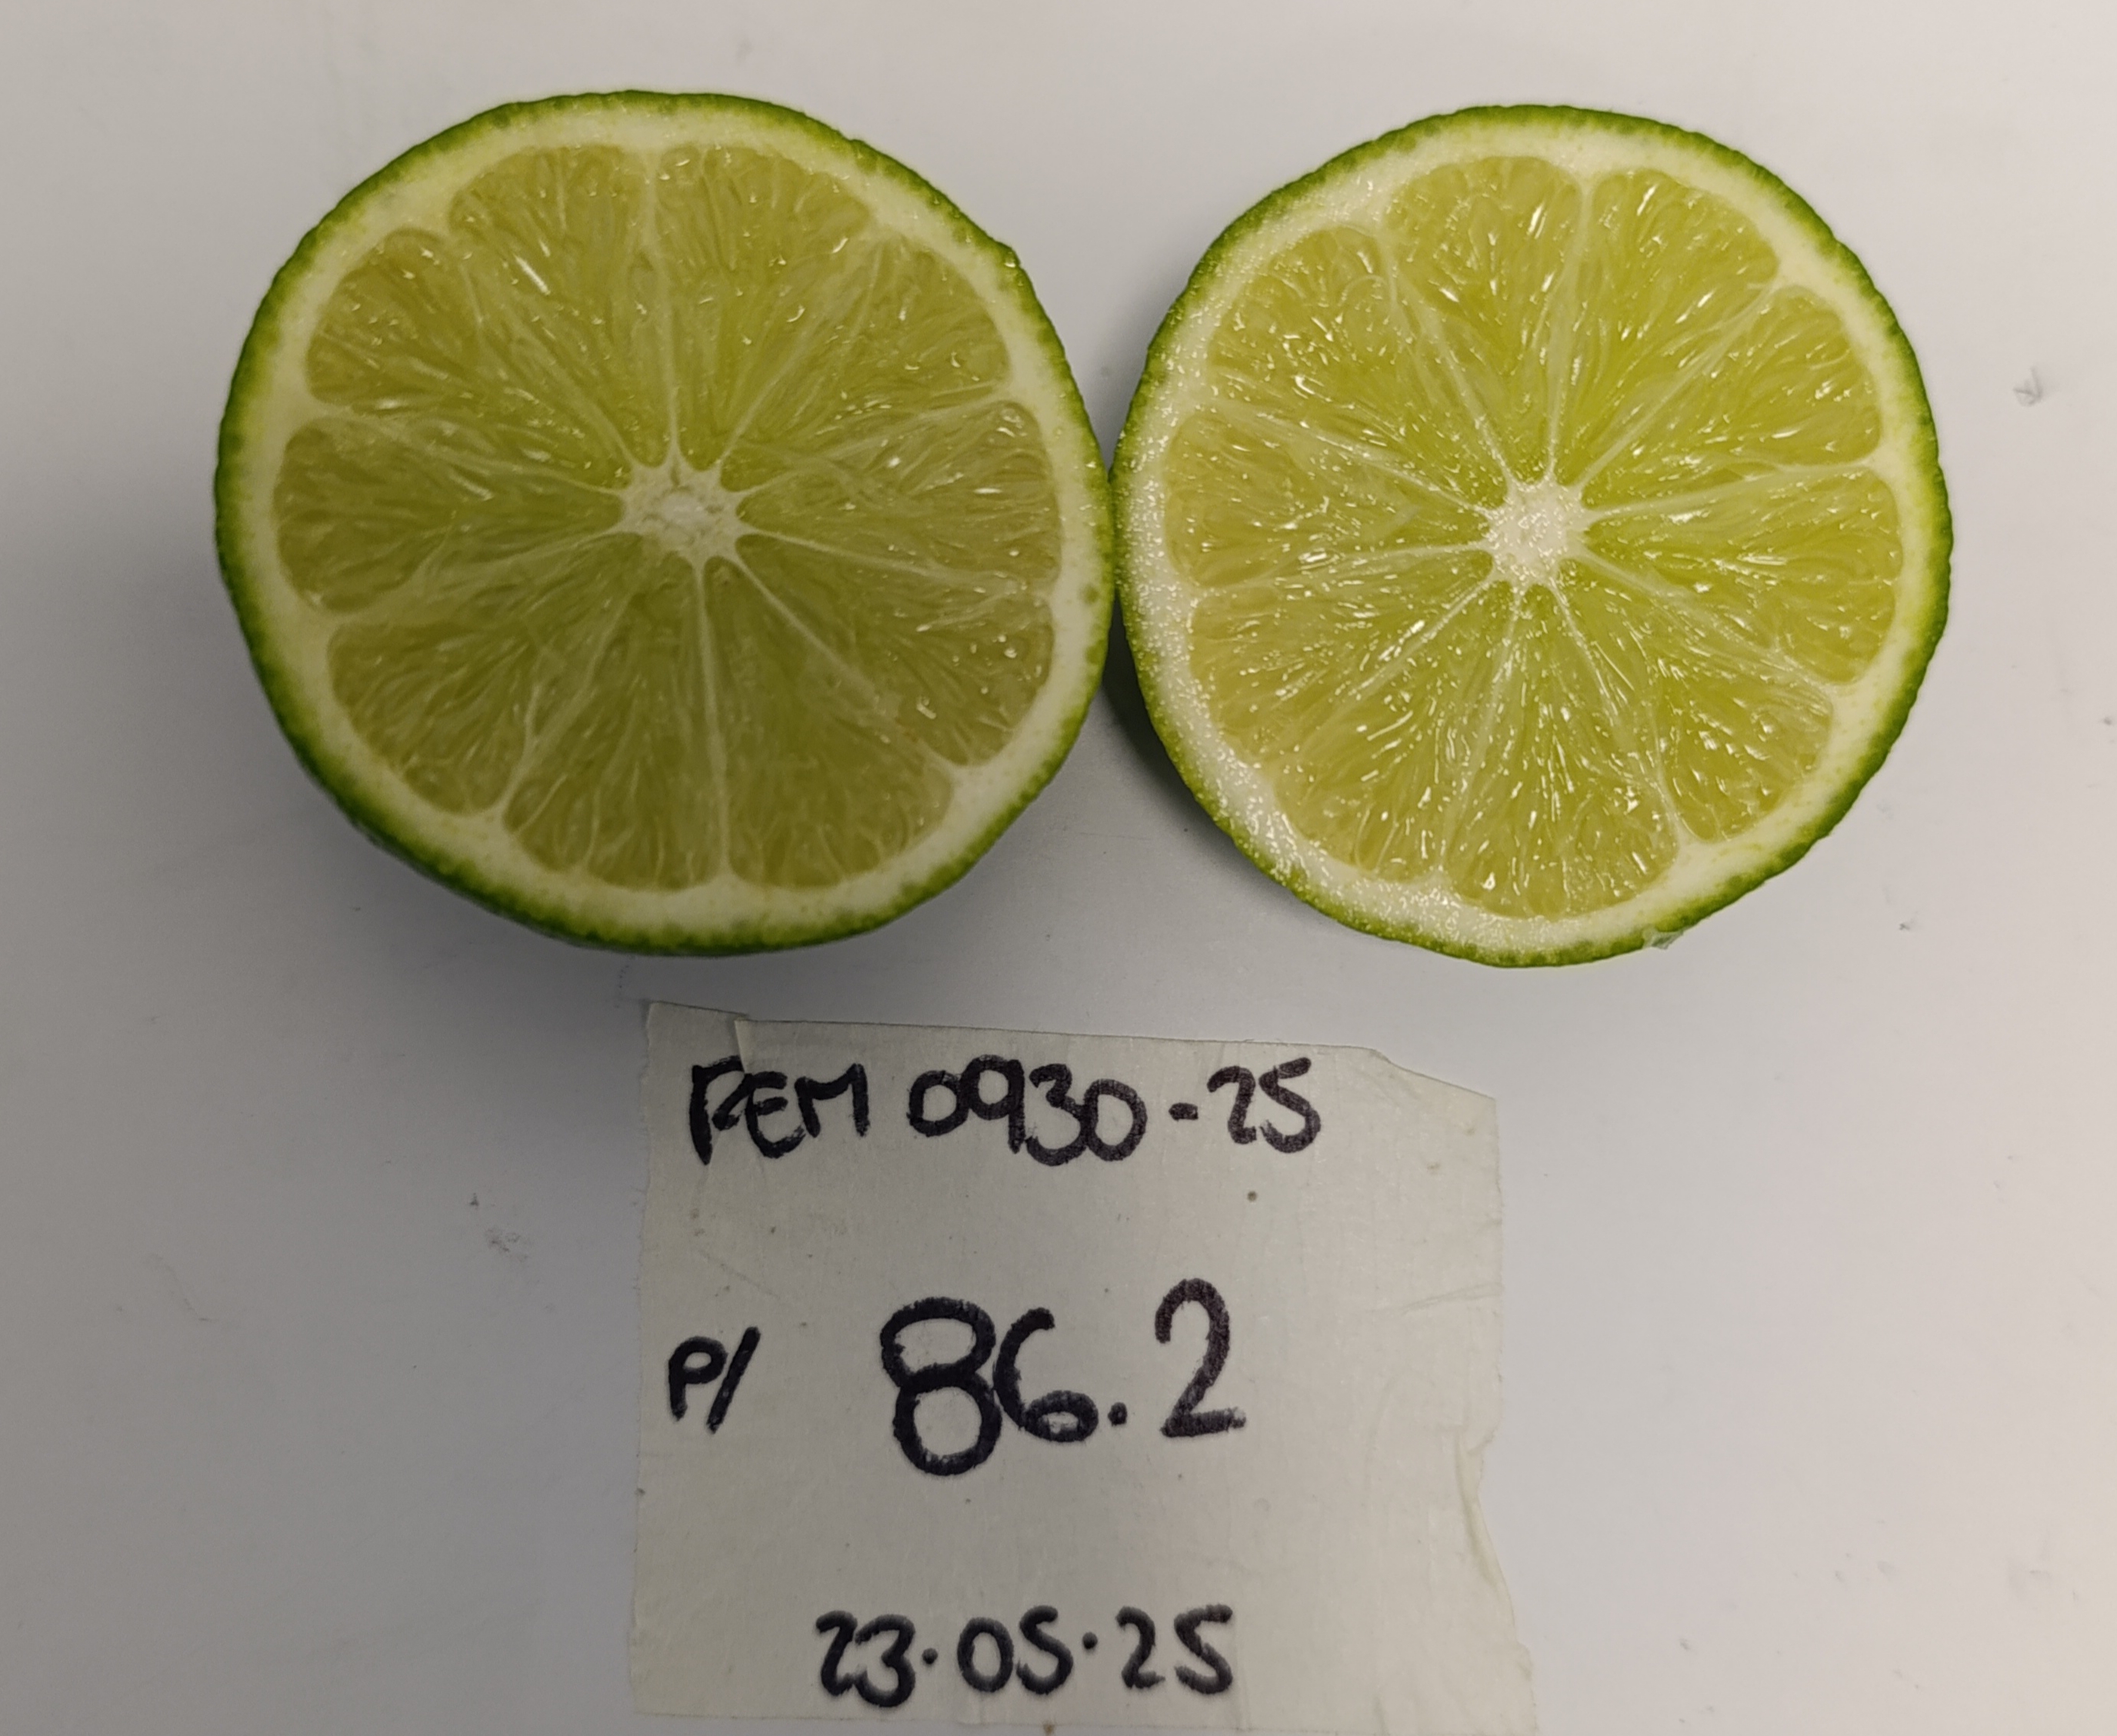 REM 0930-25
P/ 86.2
23.05.25